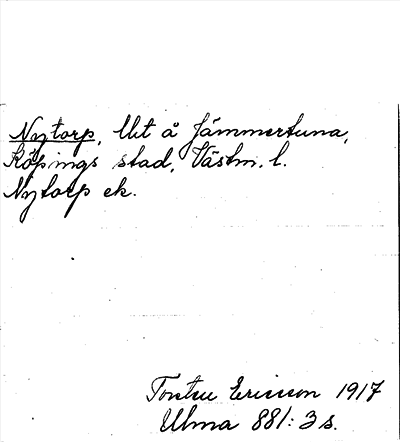 Nytorp, Utit å Jämmertuna,
Köpings stad, Västm. l.
Nytorp ek.
Torsten Ericsson 1917
Ulma 881: 3 s.